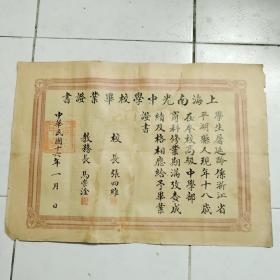 上海南光中學校畢業證書
學生屠遐齡係浙江省
平湖縣人現年十八歲
在本校高級中學部
商科修業期滿攷查成
績及格相應給予畢業
證書
校長 張四維
教務長 馬崇淦
中華民國十六年一月 日